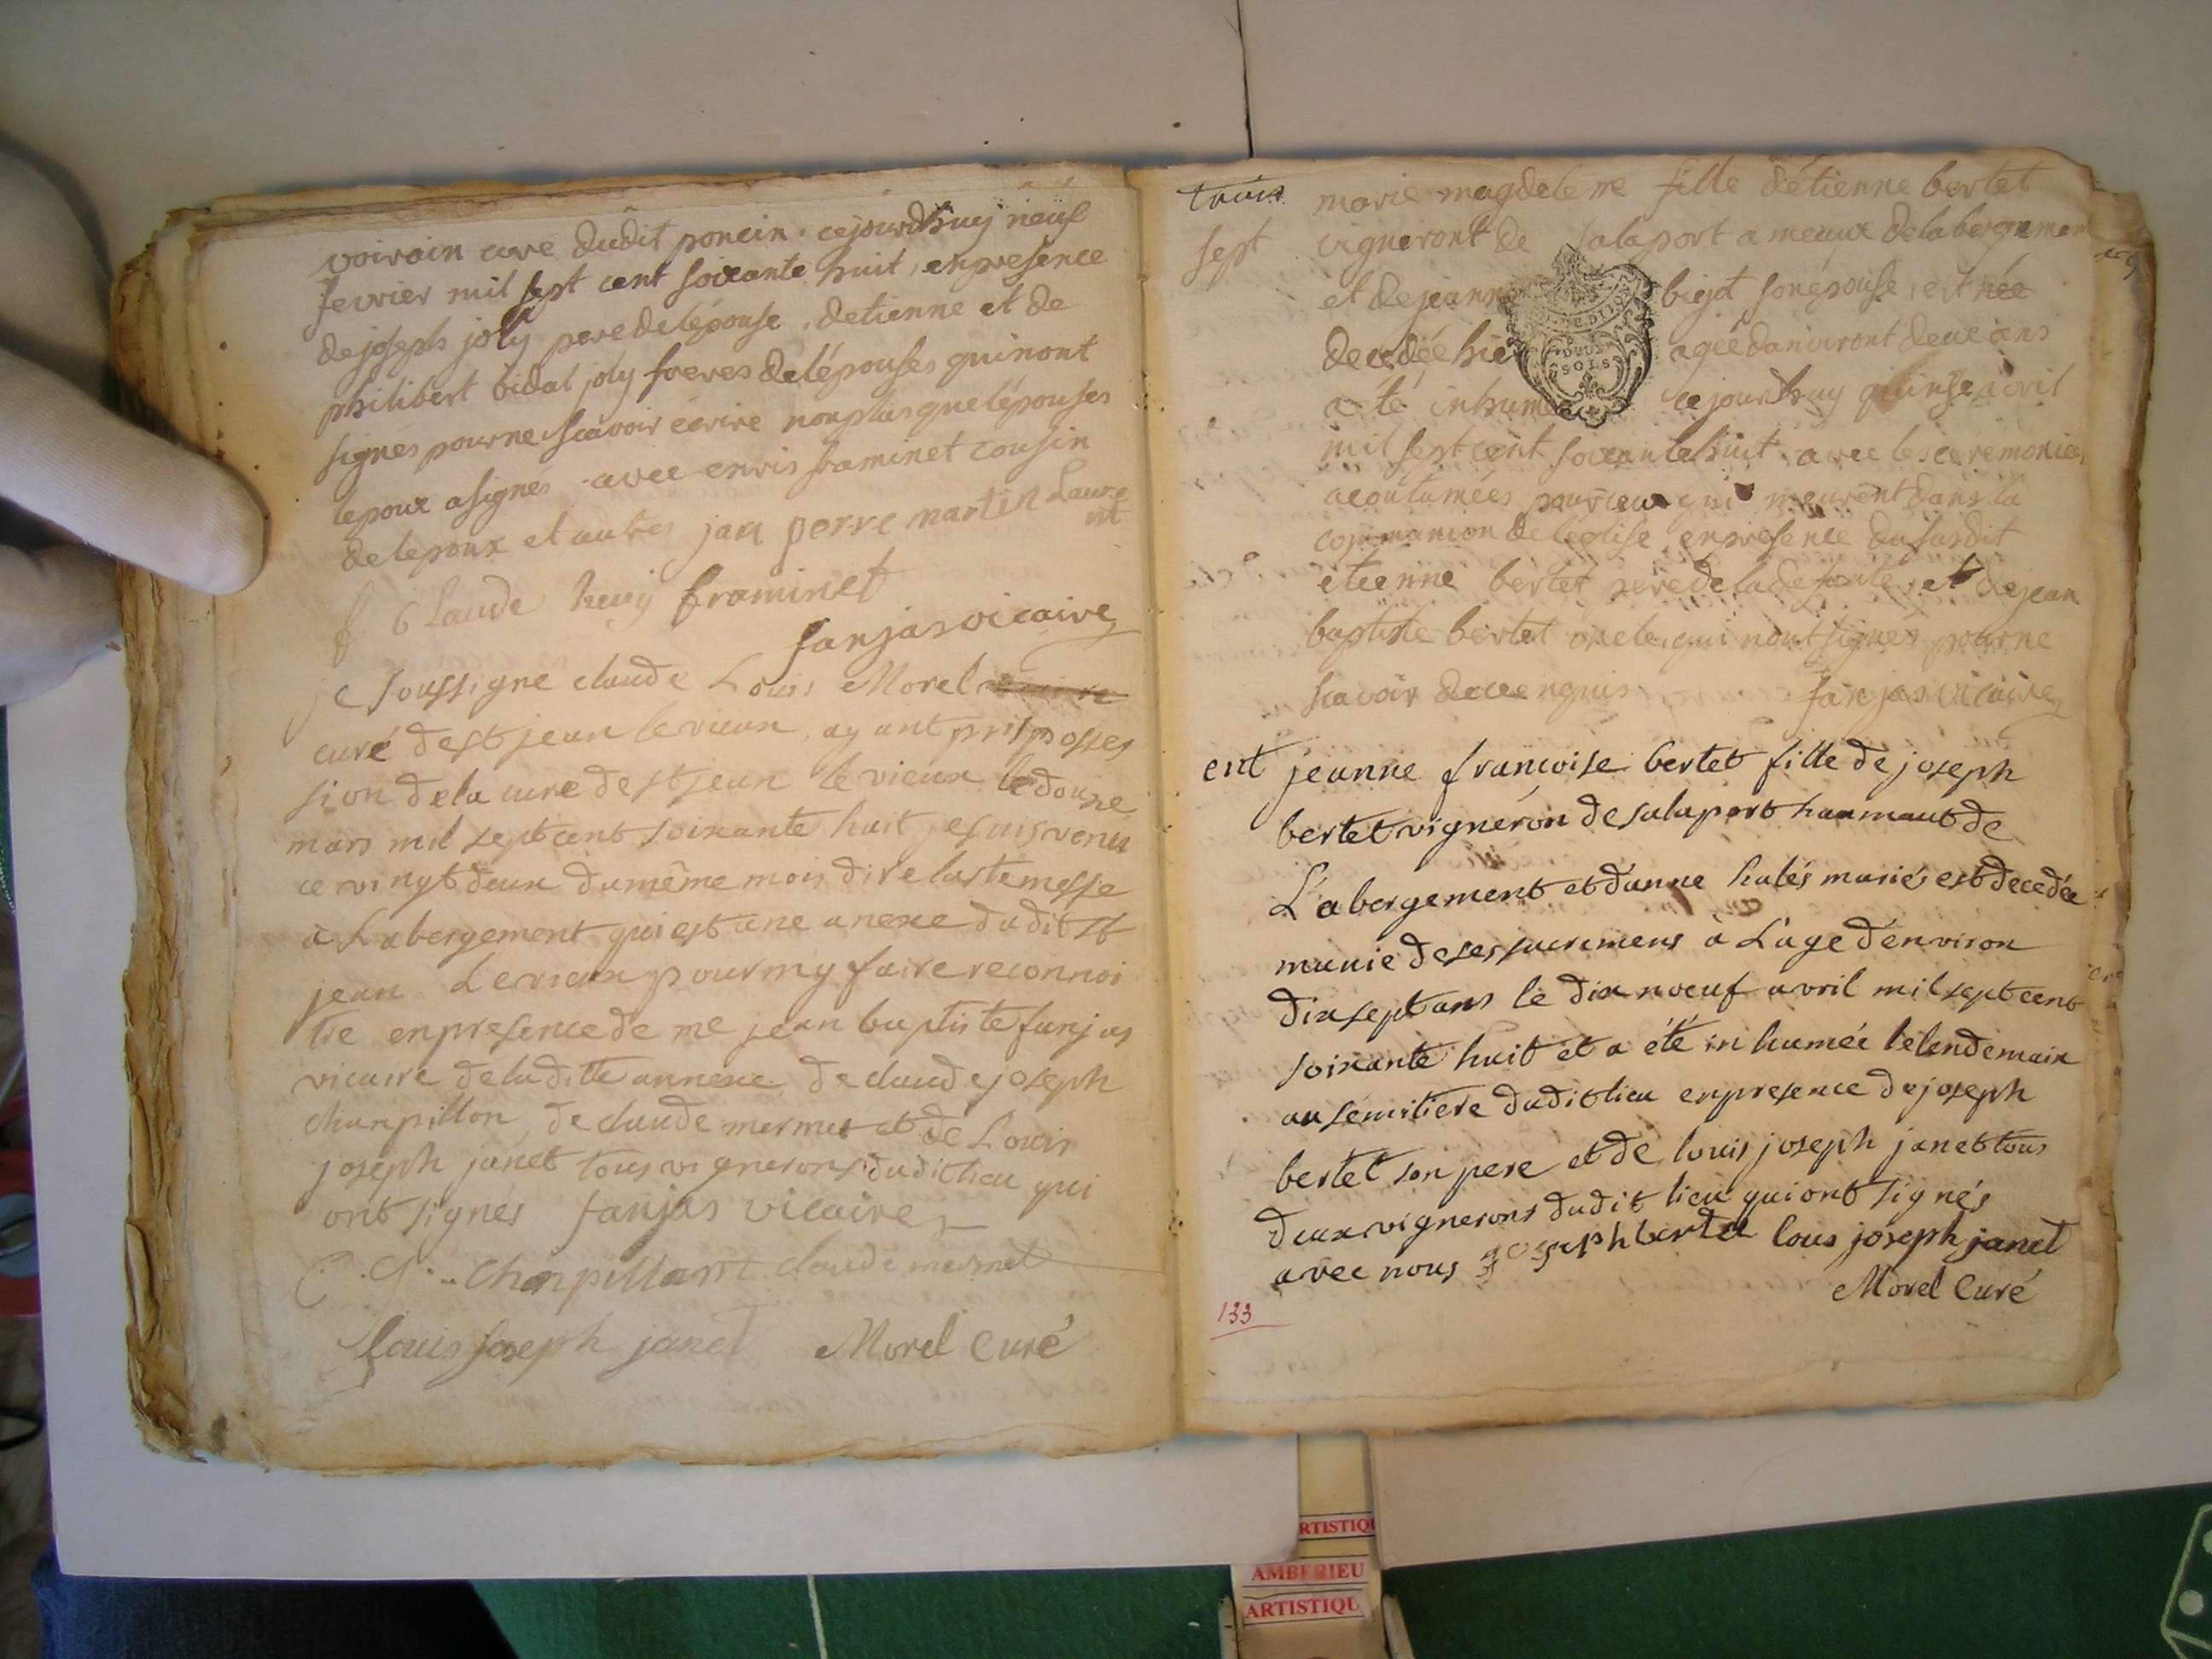 voirain cure dudit poncin. cejourdhuy neuf
fevrier mil sept cent soixante huit, enpresence
de joseph joly pere delépouse, detienne et de
philibert bidal joly freres delépouses quinont
signés pourne scavoir écrire nonplus que lépouses
lepoux asignés avec enris framinet cousin
delepoux et autres jan perre martin Laure
nt
Claude henry framinet
fanjas vicaire
je soussigne claude Louis Morel
curé de st jean le vieux, ayant pris posses
sion dela cure de st jean le vieux le douze
mars mil sept cent soixante huit je suis venu
ce vingt deux du même mois dire la ste messe
à Labergement qui est une anexe dudit st
jean Le vieux pour my faire reconnoi
tre enpresence de me jean baptiste fanjas
vicaire de laditte annexe de claude joseph
chanpillon, de claude mermet et de Louis
joseph janet tous vignerons dudit lieu qui
ont signés fanjas vicaire
C. j. Chanpillont claude mermet
Louis Joseph janet Morel Curé
trois marie magdelene fille détienne bertet
sept vigneront de salaport ameaux delabergemen
et de jeanne bigot son épouse, est née
decedée hier agée danviront deux ans
DEUX
SOLS
a été inhumée cejourdhuy quinse avril
mil sept cent soixante huit avec les ceremonies
acoutumées pour ceux qui meurent dans la
communion de léglise, enpresence dususdit
etienne bertet pere de la defunte, et de jean
baptiste bertet oncle, qui nont signés pourne
scavoir dece enquis fanjas vicaire
ent jeanne françoise bertet fille de joseph
bertet vigneron de salaport hammaut de
L'abergement et d'anne hales mariés est decedée
munie de ses sacremens à L'age d'environ
dix sept ans le dix noeuf avril mil sept cent
soixante huit et a été in humée le lendemain
au semitiere dudit lieu enpresence de joseph
bertet son pere et de louis joseph janet tous
deux vignerons dudit lieu qui ont signés
avec nous joseph bertet lous joseph janet
Morel Curé
133
RTISTIQU
AMBERIEU
ARTISTIQU